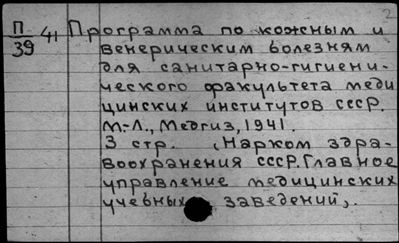 2
П/39 41 Программа по кожным и
венерическим болезням
для санитарно-гигиени-
ческого факультета меди
цинских институтов СССР.
М.-Л., Медгиз, 1941.
3 стр. (Нарком здра-
воохранения СССР. Главное
управление медицинских
учебных заведений).